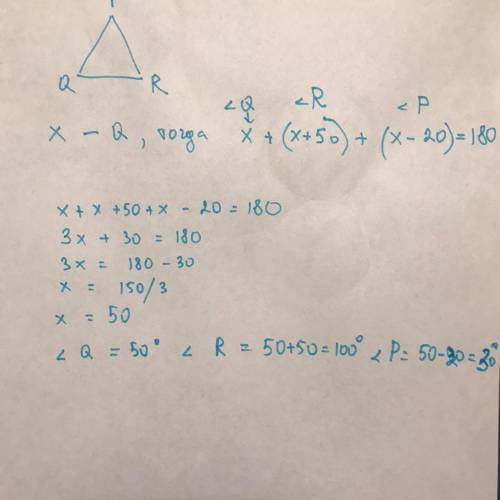 Q R
∠Q ∠R ∠P
x – Q, тогда x + (x+50) + (x – 20) = 180
x + x + 50 + x – 20 = 180
3x + 30 = 180
3x = 180 – 30
x = 150/3
x = 50
∠ Q = 50° ∠ R = 50+50 = 100° ∠ P = 50-20 = 30°